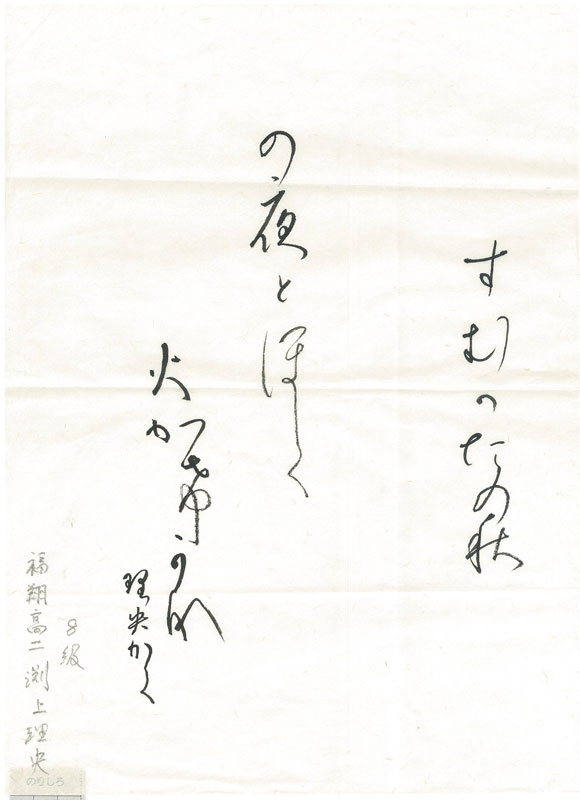 すむかたの秋
の夜とほ
火か
かな
理央かく
8級
福翔高二 渕上理央
のりしろ